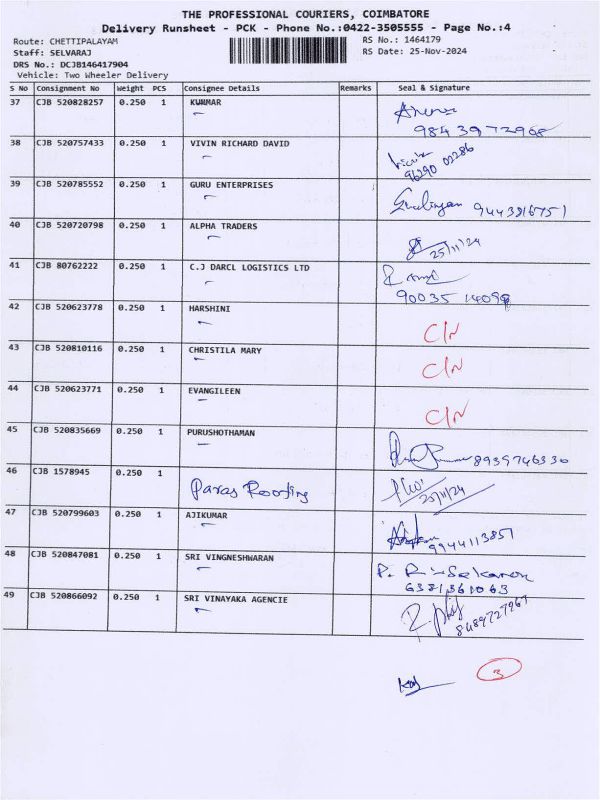 THE PROFESSIONAL COURIERS, COIMBATORE
Delivery Runsheet - PCK - Phone No.:0422-3505555 - Page No.:4
Route: CHETTIPALAYAM
Staff: SELVARAJ
DRS No.: DCJB146417904
Vehicle: Two Wheeler Delivery
RS No.: 1464179
RS Date: 25-Nov-2024
S No Consignment No Weight PCS Consignee Details Remarks Seal & Signature
37 CJB 520828257 0.250 1 KUMMAR
9843972968
38 CJB 520757433 0.250 1 VIVIN RICHARD DAVID
96290 02286
39 CJB 520785552 0.250 1 GURU ENTERPRISES
9443816751
40 CJB 520720798 0.250 1 ALPHA TRADERS
25/11/24
41 CJB 80762222 0.250 1 C.J DARCL LOGISTICS LTD
90035 14098
42 CJB 520623778 0.250 1 HARSHINI C/N
43 CJB 520810116 0.250 1 CHRISTILA MARY C/N
44 CJB 520623771 0.250 1 EVANGILEEN C/N
45 CJB 520835669 0.250 1 PURUSHOTHAMAN 8939746330
46 CJB 1578945 0.250 1 Paras Roofing
25/11/24
47 CJB 520799603 0.250 1 AJIKUMAR
9944113851
48 CJB 520847081 0.250 1 SRI VINGNESHWARAN
6381361063
49 CJB 520866092 0.250 1 SRI VINAYAKA AGENCIE
8489727967
3